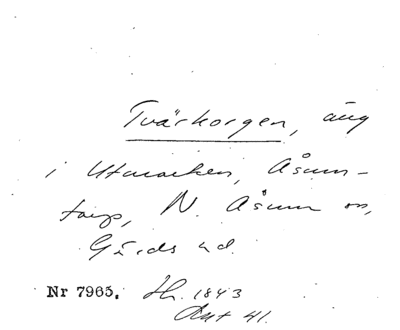 Tvärkorgen, äng
i Utmarken, Åsum-
torp, N. Åsum sn,
Gärds hd.
Nr 7965. Hh. 1843
Akt 41.